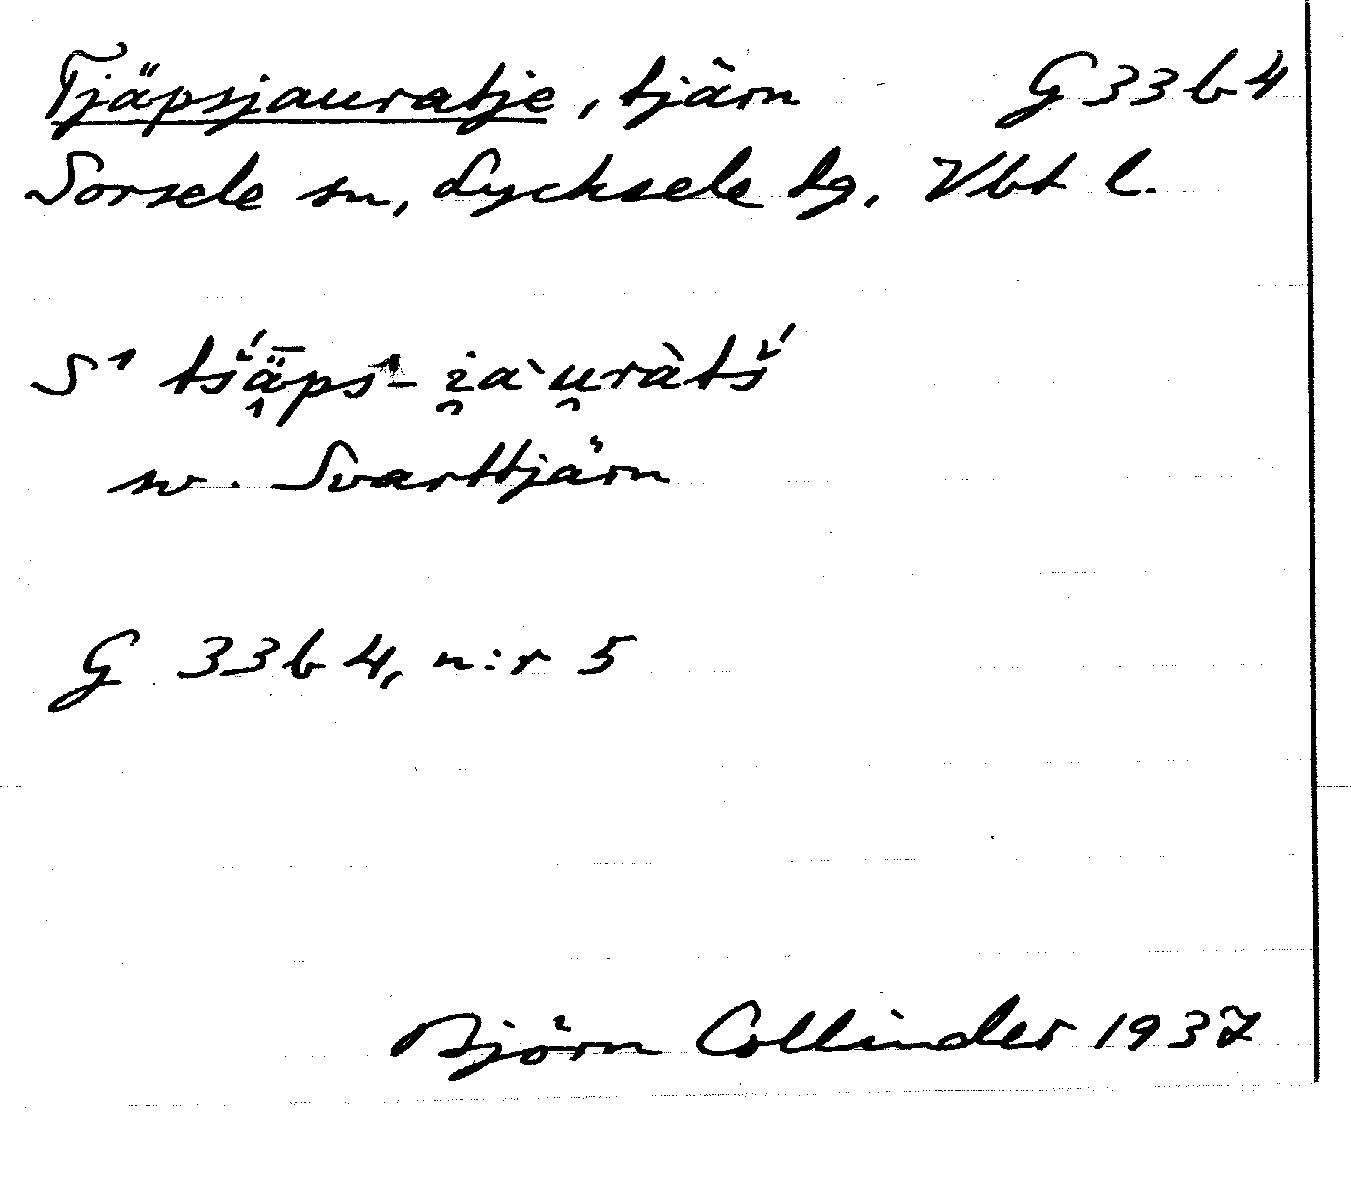 Tjäpsjauratje, tjärn G 33 b 4
Sorsele sn, Lycksele tg, Vbt l.
S¹ tš́ǟ̭ps-i̯a`u̯ràtš́
sv. Svarttjärn
G 33 b 4, n:r 5
Björn Collinder 1937